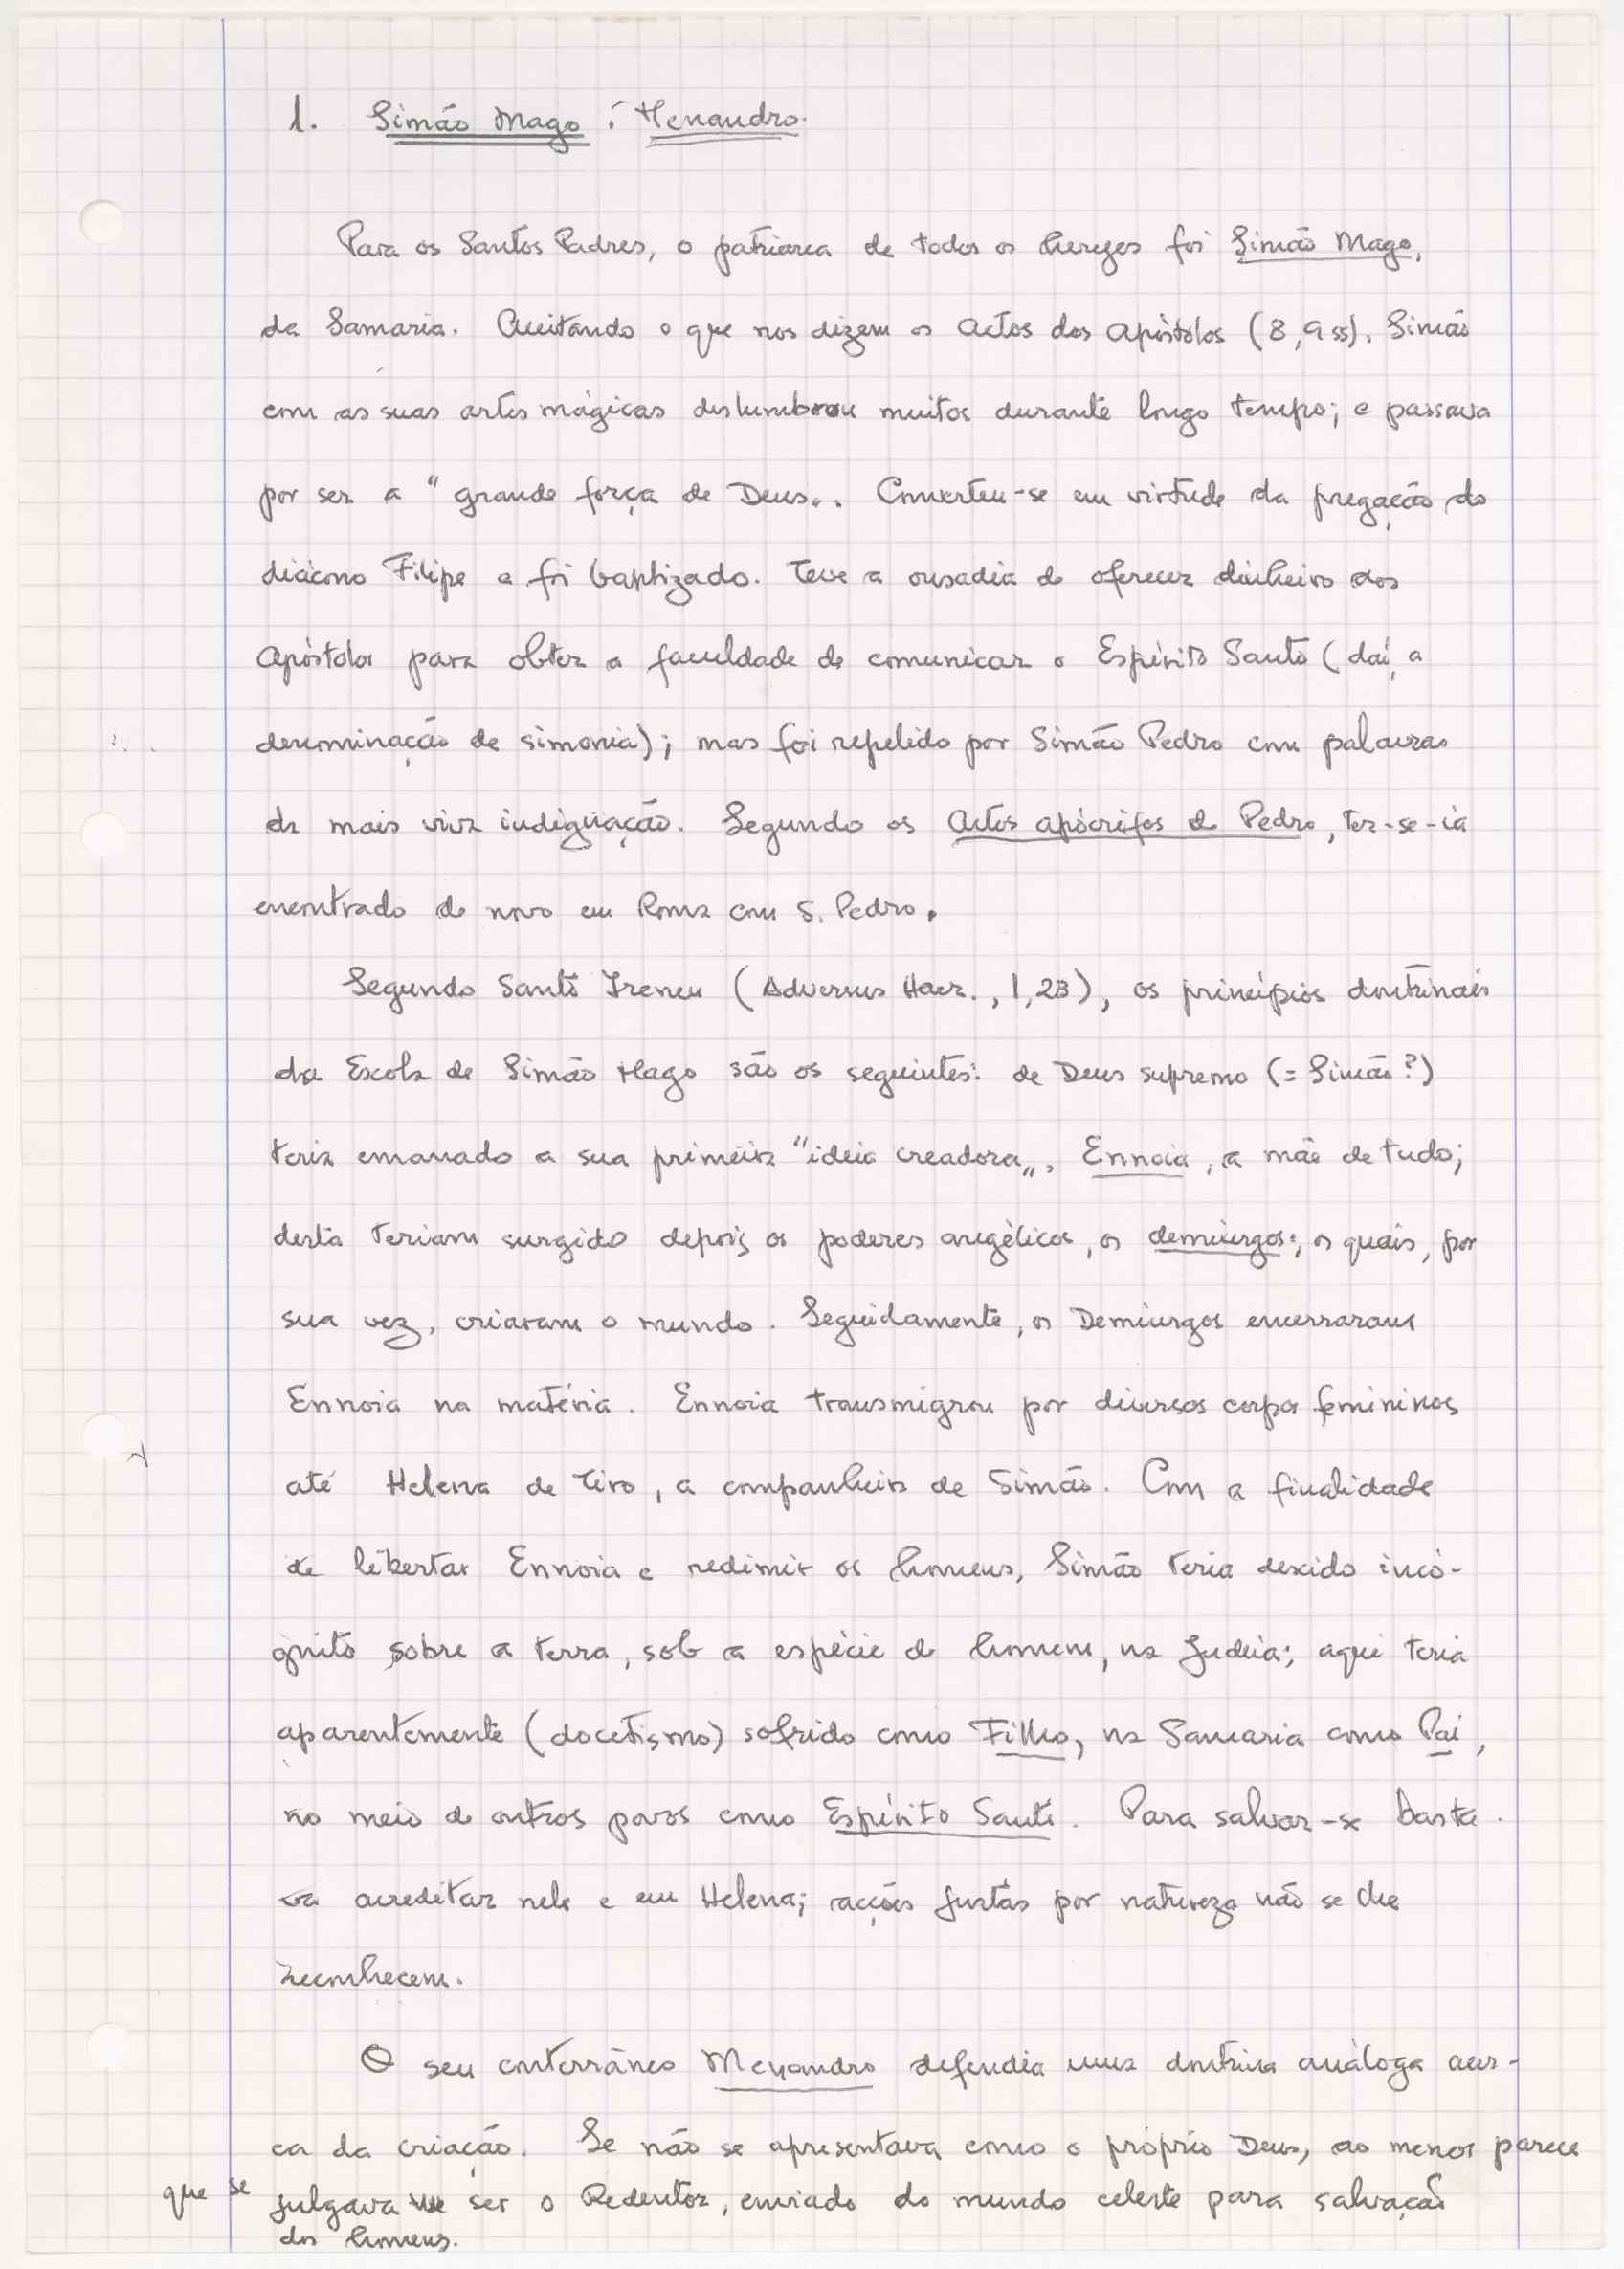 1. Simão Mago : Menandro.
Para os Santos Padres, o patriarca de todos os hereges foi Simão Mago,
da Samaria. Aceitando o que nos dizem os Actos dos Apóstolos (8,9 ss), Simão
com as suas artes mágicas deslumbrou muitos durante longo tempo; e passava
por ser a "grande força de Deus„. Converteu-se em virtude da pregação do
diácono Filipe e foi baptizado. Teve a ousadia de oferecer dinheiro aos
Apóstolos para obter a faculdade de comunicar o Espírito Santo (daí, a
denominação de simonia); mas foi repelido por Simão Pedro com palavras
da mais viva indignação. Segundo os Actos apócrifos de Pedro, ter-se-ia
encontrado de novo em Roma com S. Pedro.
Segundo Santo Ireneu (Adversus Haer., 1, 23), os princípios doutrinais
da Escola de Simão Mago são os seguintes: de Deus supremo (= Simão?)
teria emanado a sua primeira "ideia creadora„, Ennoia, a mãe de tudo;
desta teriam surgido depois os poderes angélicos, os demiurgos; os quais, por
sua vez, criaram o mundo. Seguidamente, os Demiurgos encerraram
Ennoia na matéria. Ennoia transmigrou por diversos corpos femininos
até Helena de Tiro, a companheira de Simão. Com a finalidade
de libertar Ennoia e redimir os homens, Simão teria descido incó-
gnito sobre a terra, sob a espécie de homem, na Judeia; aqui teria
aparentemente (docetismo) sofrido como Filho, na Samaria como Pai,
no meio de outros povos como Espírito Santo. Para salvar-se basta-
va acreditar nele e em Helena; acções justas por natureza não se lhe
reconhecem.
O seu conterrâneo Menandro defendia uma doutrina análoga acer-
ca da criação. Se não se apresentava como o próprio Deus, ao menos parece
que se julgava ser o Redentor, enviado do mundo celeste para salvação
dos homens.